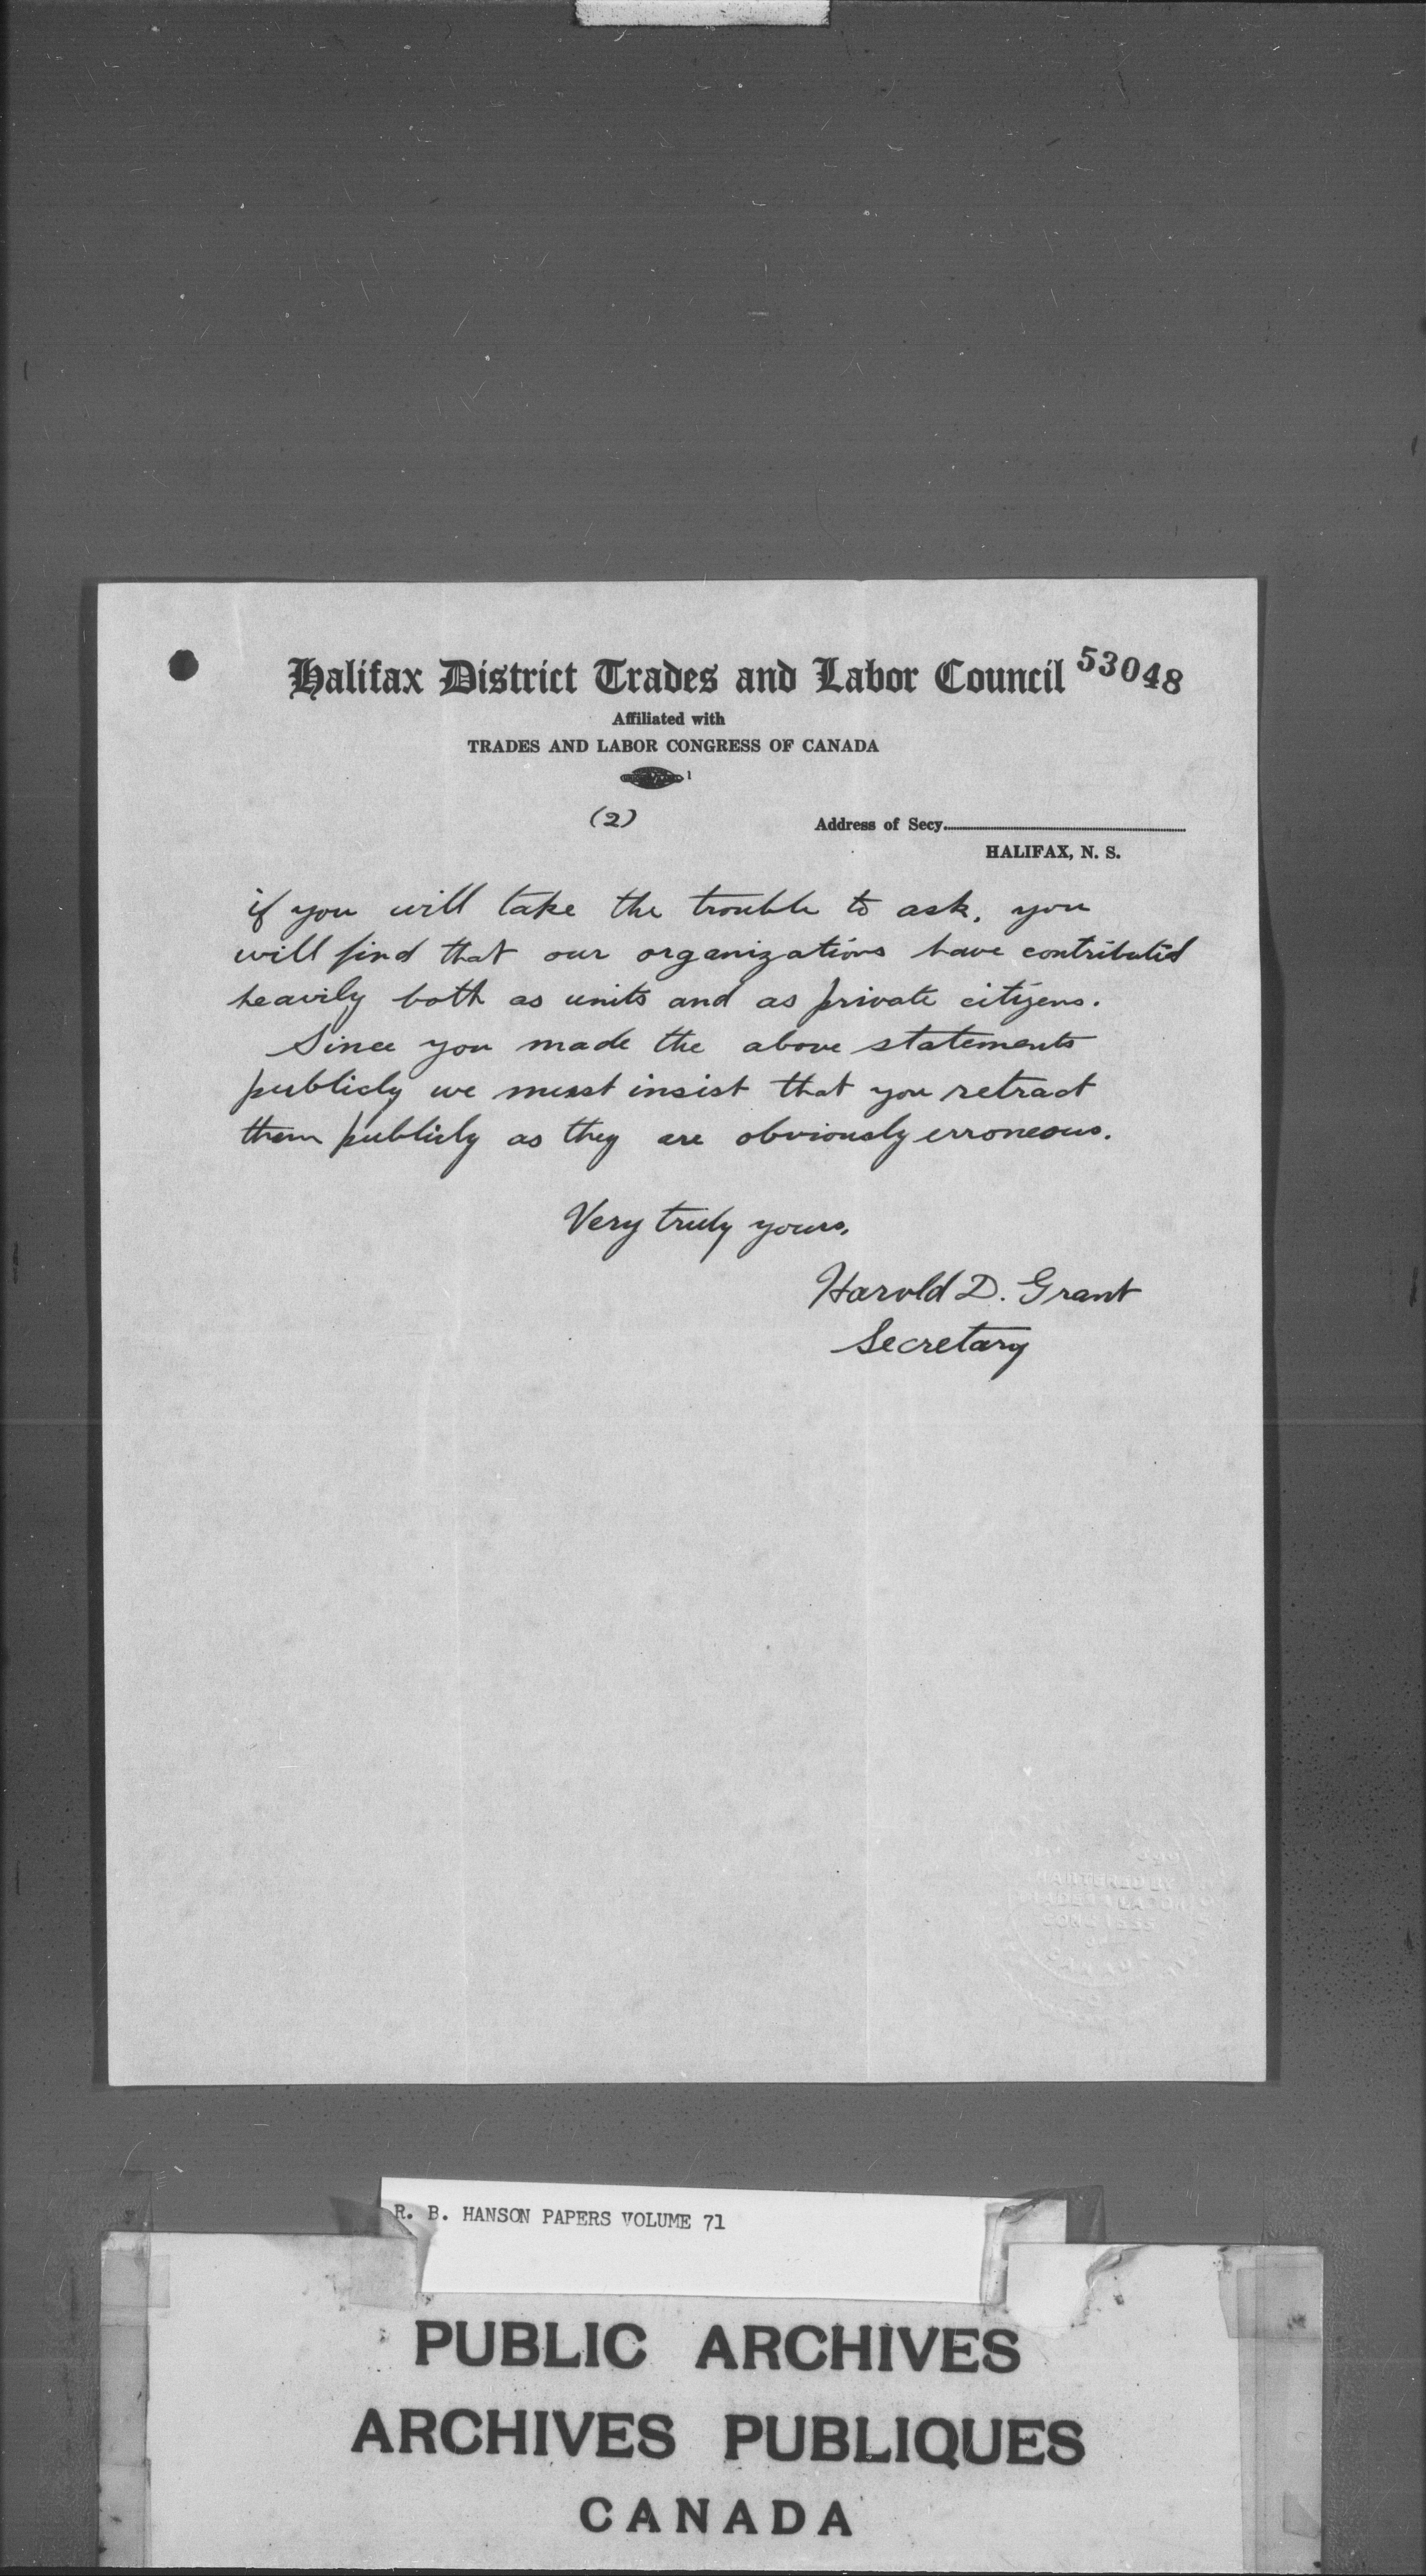 Halifax District Trades and Labor Council 53048
Affiliated with
TRADES AND LABOR CONGRESS OF CANADA
1
(2)
Address of Secy.
HALIFAX, N. S.
if you will take the trouble to ask, you
will find that our organizations have contributed
heavily both as units and as private citizens.
Since you made the above statements
publicly we must insist that you retract
them publicly as they are obviously erroneous.
Very truly yours,
Harold D. Grant
Secretary
R. B. HANSON PAPERS VOLUME 71
PUBLIC ARCHIVES
ARCHIVES PUBLIQUES
CANADA